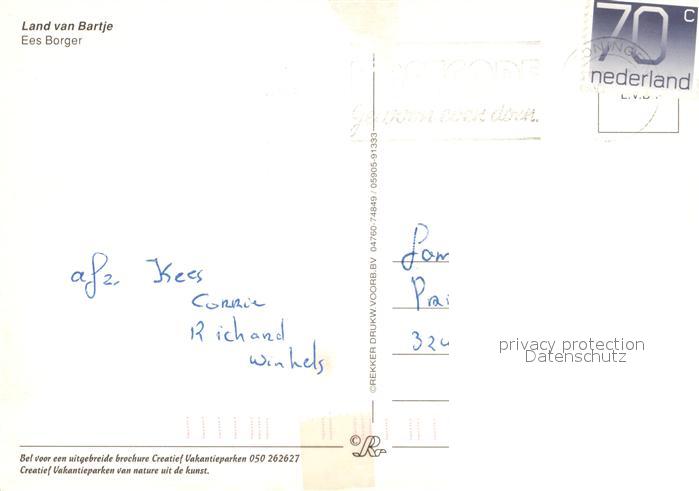 Land van Bartje
Ees Borger
70 c
nederland
POSTCODE
gewoon even doen.
©REKKER DRUKW.VOORB.BV 04760-74849 / 05905-91333
afz. Kees
Corrie
Richard
Winkels
Fam
Prai
324
privacy protection
Datenschutz
©R
Bel voor een uitgebreide brochure Creatief Vakantieparken 050 262627
Creatief Vakantieparken van nature uit de kunst.